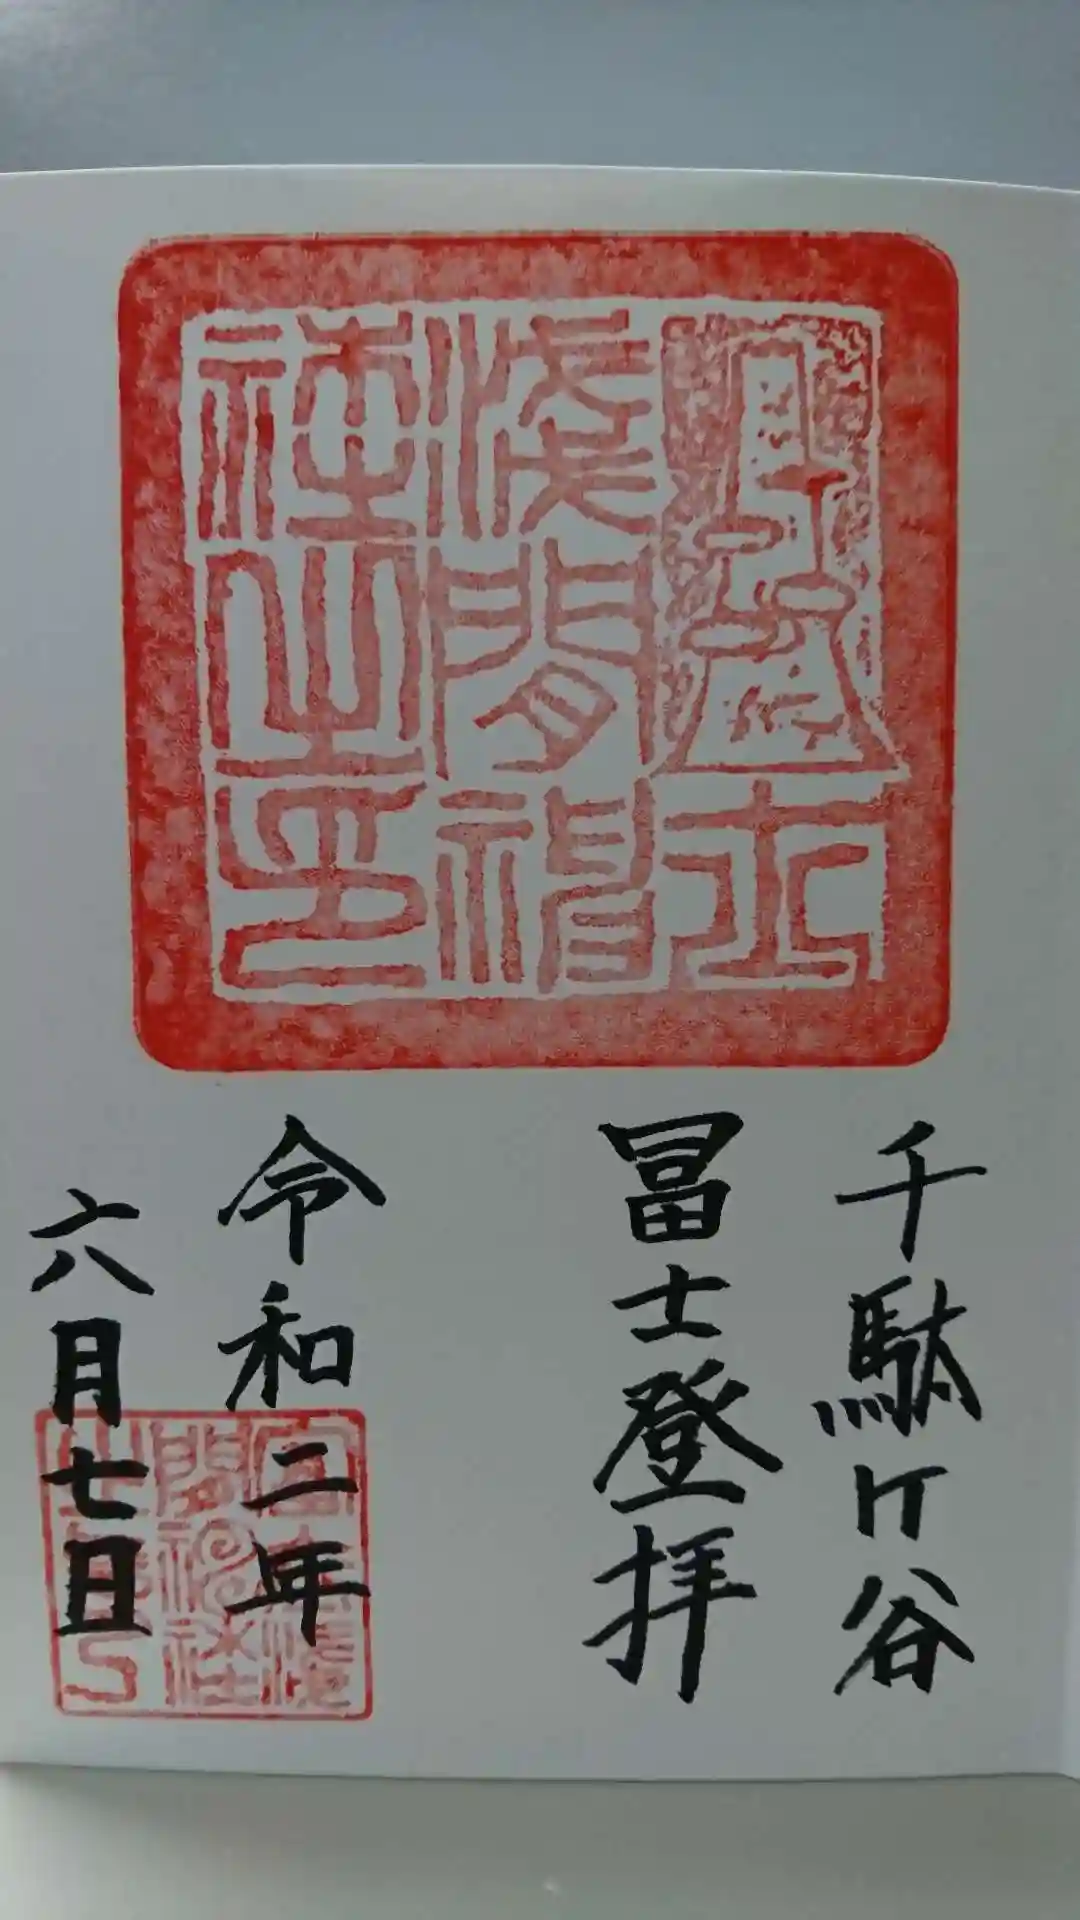 富士
淺間神
社之印
千駄ケ谷
冨士登拝
令和二年
六月七日
富士浅
間神社